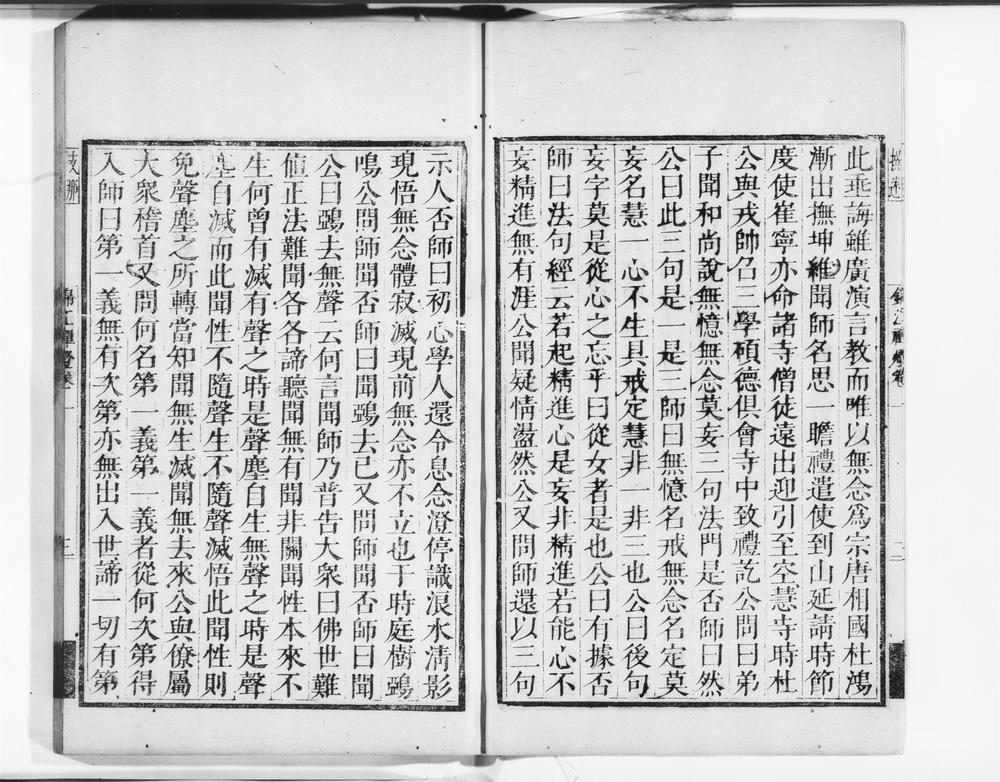 此乖誨雖廣演言教而唯以無念為宗唐相國杜鴻
漸出撫坤維聞師名思一瞻禮遣使到山延請時節
度使崔寧亦命諸寺僧徒遠出迎引至空慧寺時杜
公與戎帥召三學碩德俱會寺中致禮訖公問曰弟
子聞和尚說無憶無念莫妄三句法門是否師曰然
公曰此三句是一是三師曰無憶名戒無念名定莫
妄名慧一心不生具戒定慧非一非三也公曰後句
妄字莫是從心之忘乎曰從女者是也公曰有據否
師曰法句經云若起精進心是妄非精進若能心不
妄精進無有涯公聞疑情盪然公又問師還以三句
示人否師曰初心學人還令息念澄停識浪水清影
現悟無念體寂滅現前無念亦不立也于時庭樹鵶
鳴公問師聞否師曰聞鵶去已又問師聞否師曰聞
公曰鵶去無聲云何言聞師乃普告大衆曰佛世難
值正法難聞各各諦聽聞無有聞非關聞性本來不
生何曾有滅有聲之時是聲塵自生無聲之時是聲
塵自滅而此聞性不隨聲生不隨聲滅悟此聞性則
免聲塵之所轉當知聞無生滅聞無去來公與僚屬
大衆稽首又問何名第一義第一義者從何次第得
入師曰第一義無有次第亦無出入世諦一切有第
錦江禪燈卷一
二
錦江禪燈卷一
三